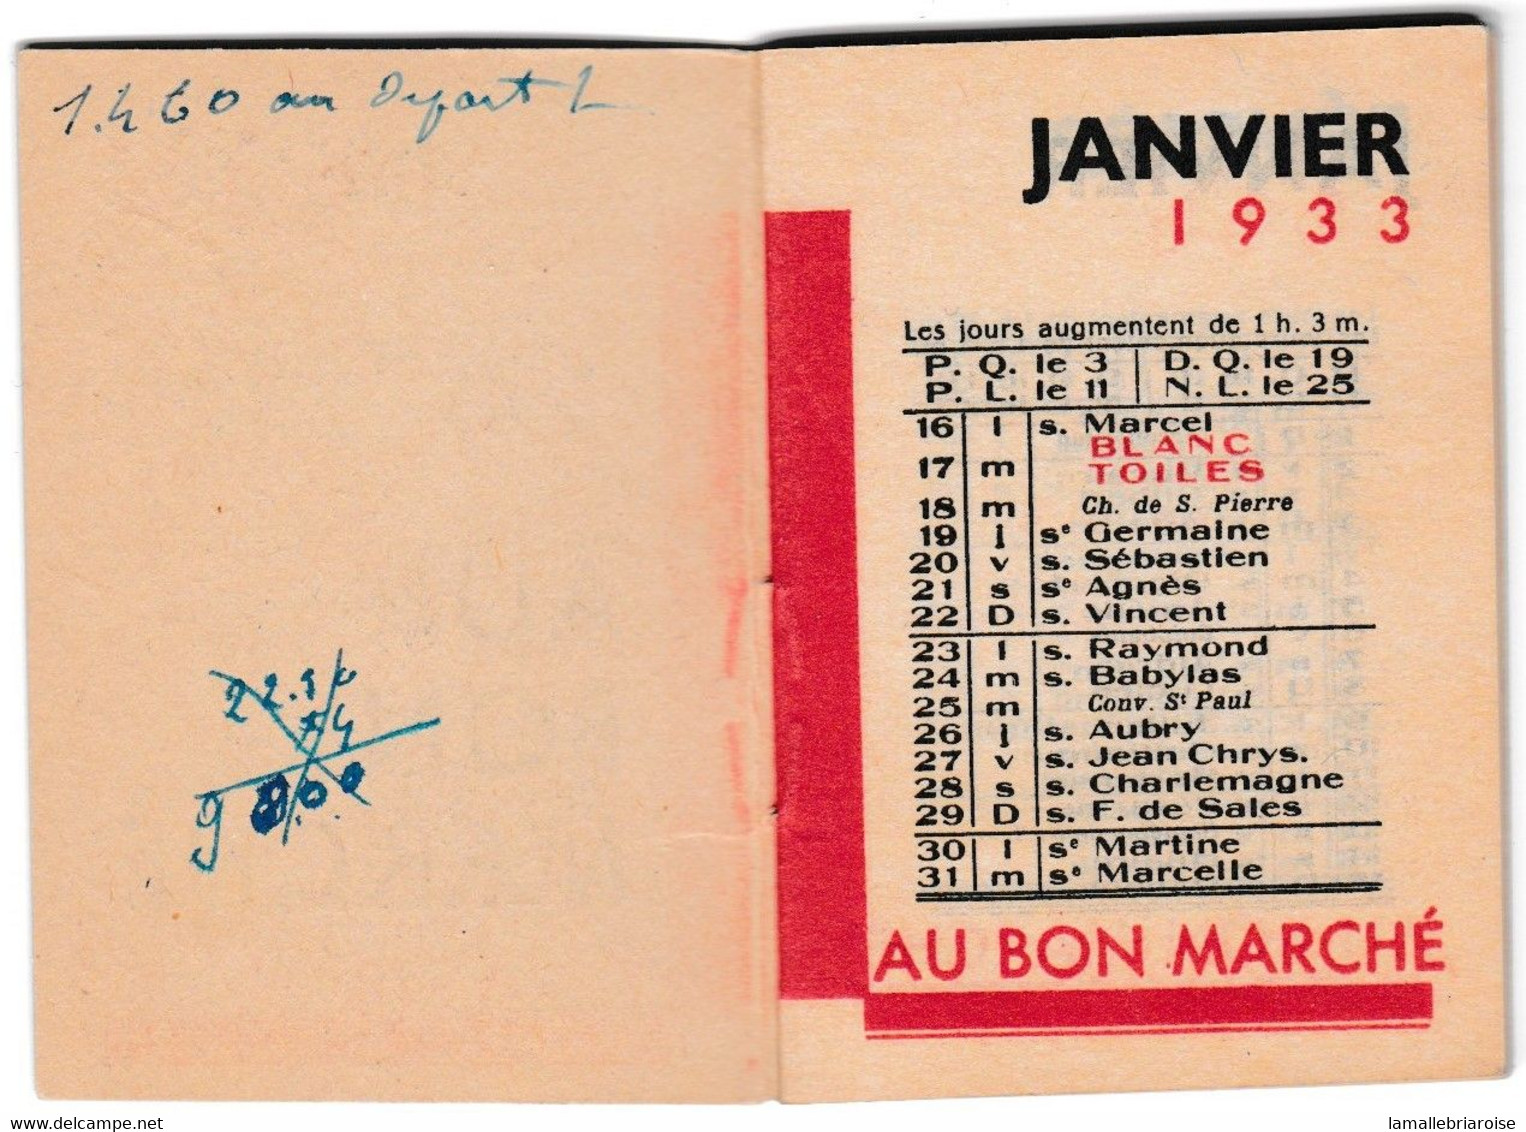 1.460 au Depart
JANVIER
1933
Les jours augmentent de 1 h. 3 m.
P. Q. le 3 D. Q. le 19
P. L. le 11 N. L. le 25
16 l s. Marcel
BLANC
17 m TOILES
18 m Ch. de S. Pierre
19 j sᵉ Germaine
20 v s. Sébastien
21 s sᵉ Agnès
22 D s. Vincent
23 l s. Raymond
24 m s. Babylas
25 m Conv. Sᵗ Paul
26 j s. Aubry
27 v s. Jean Chrys.
28 s s. Charlemagne
29 D s. F. de Sales
30 l sᵉ Martine
31 m sᵉ Marcelle
AU BON MARCHÉ
www.delcampe.net
lamallebriaroise